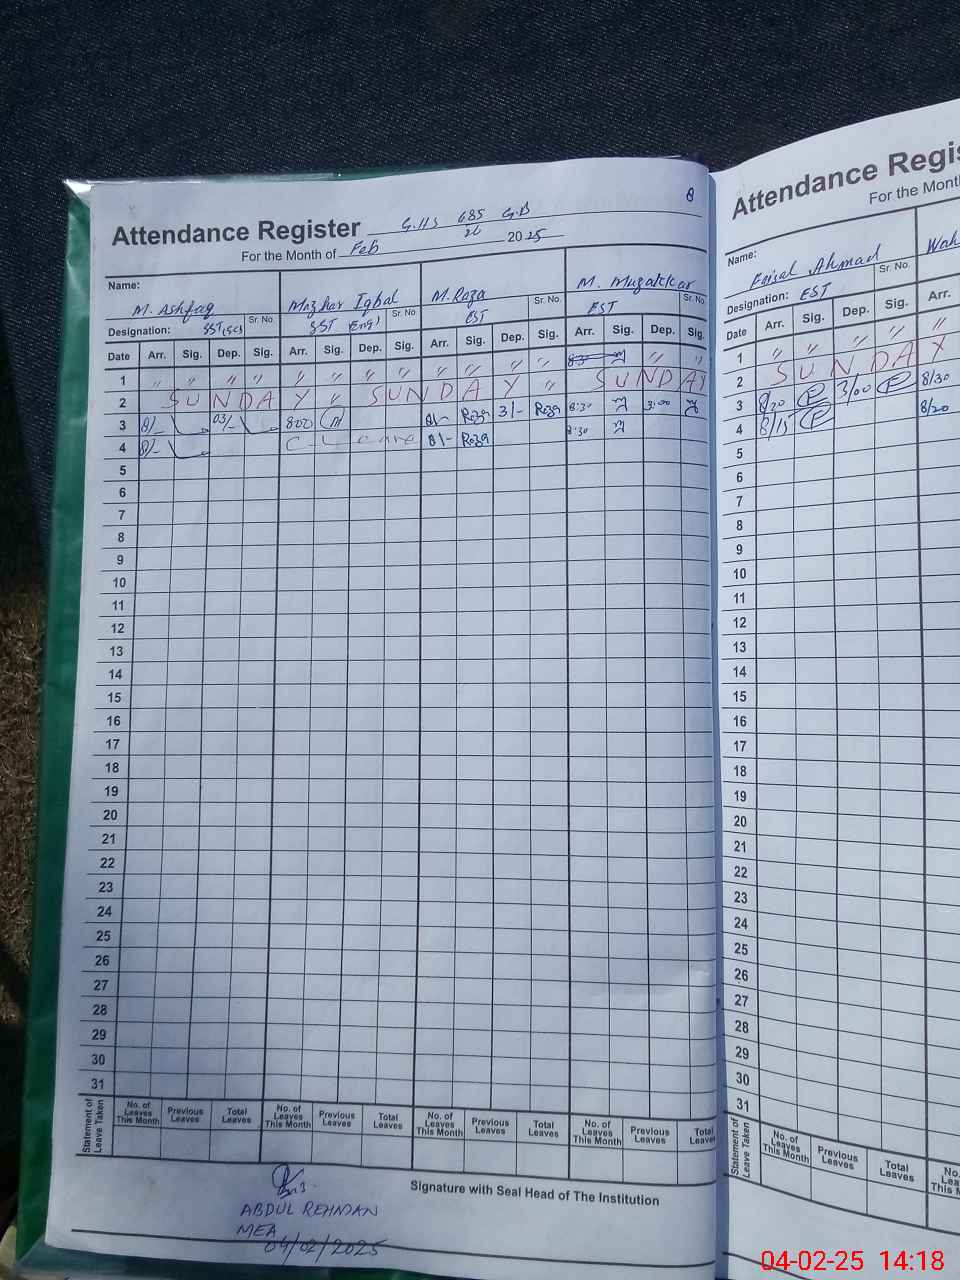 Attendance Register G.HS 685/26 G.B
8
For the Month of Feb 2025
Name: M. Ashfaq
Mazhar Iqbal
M. Raza
M. Muzakkar
Sr. No. Sr. No. Sr. No. Sr. No.
Designation: SST(Sc) SST (Eng) EST EST
Date Arr. Sig. Dep. Sig. Arr. Sig. Dep. Sig. Arr. Sig. Dep. Sig. Arr. Sig. Dep. Sig.
1 " " " " " " " " " " " " 8:30 " "
2 SUNDAY " SUNDAY " SUNDAY
3 8/- 03/- 800 8/- Raza 3/- Raza 8:30 3:00
4 8/- C L 8/- Raza 8:30
5
6
7
8
9
10
11
12
13
14
15
16
17
18
19
20
21
22
23
24
25
26
27
28
29
30
31
Statement of Leave Taken
No. of Leaves This Month Previous Leaves Total Leaves No. of Leaves This Month Previous Leaves Total Leaves No. of Leaves This Month Previous Leaves Total Leaves No. of Leaves This Month Previous Leaves Total Leaves
Signature with Seal Head of The Institution
ABDUL REHMAN
MEA
04/02/2025
Attendance Regis
For the Month
Name: Faisal Ahmad Wah
Sr. No.
Designation: EST
Date Arr. Sig. Dep. Sig. Arr.
1 " " " " "
2 SUNDAY
3 8/20 P 3/00 P 8/30
4 8/15 P 8/20
5
6
7
8
9
10
11
12
13
14
15
16
17
18
19
20
21
22
23
24
25
26
27
28
29
30
31
Statement of Leave Taken
No. of Leaves This Month Previous Leaves Total Leaves No. Lea This M
04-02-25 14:18